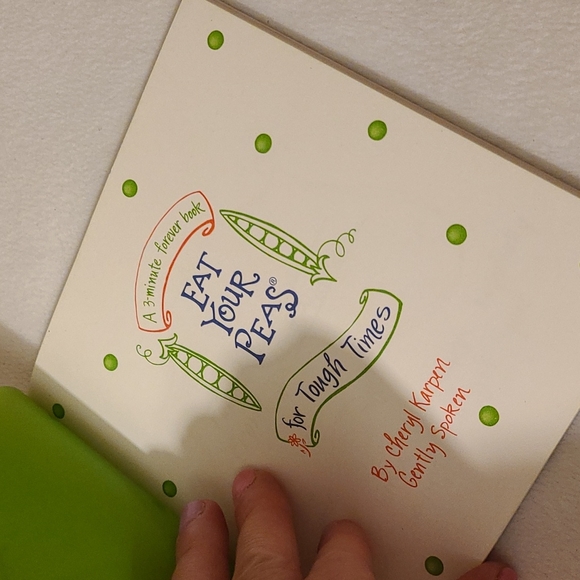 A 3-minute forever book
EAT
YOUR
PEAS®
for Tough Times
By Cheryl Karpen
Gently Spoken